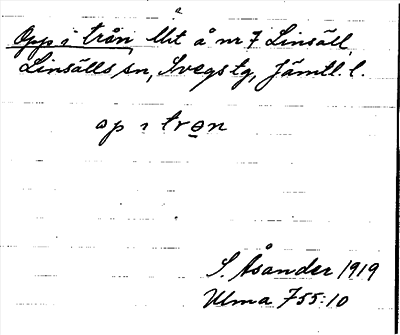 Opp i trån, Utt å nr 7 Linsäll,
Linsälls sn, Svegs tg, Jämtl. l.
op i tron
S. Åsander 1919
Ulma 755:10